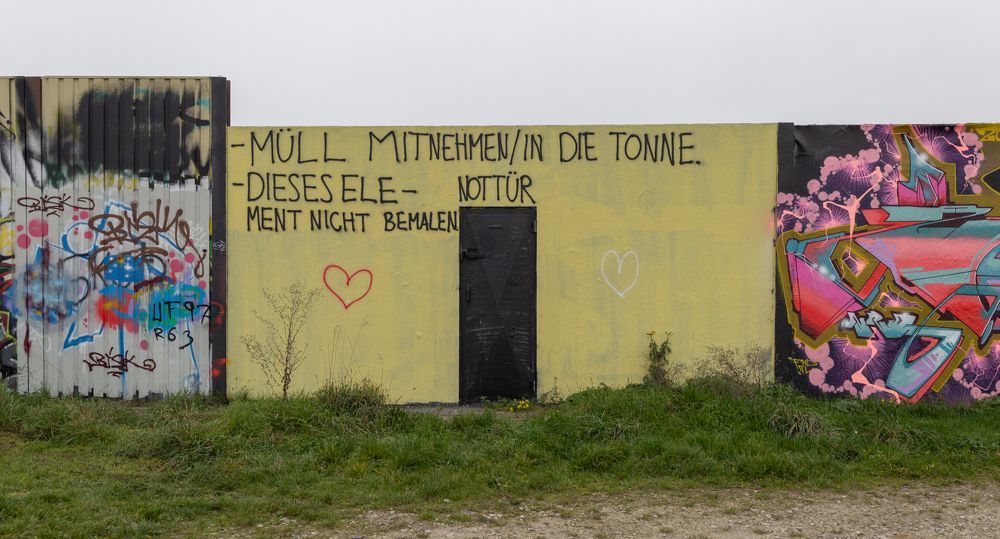 -MÜLL MITNEHMEN/IN DIE TONNE.
-DIESES ELE- NOTTÜR
MENT NICHT BEMALEN
UF97
R63